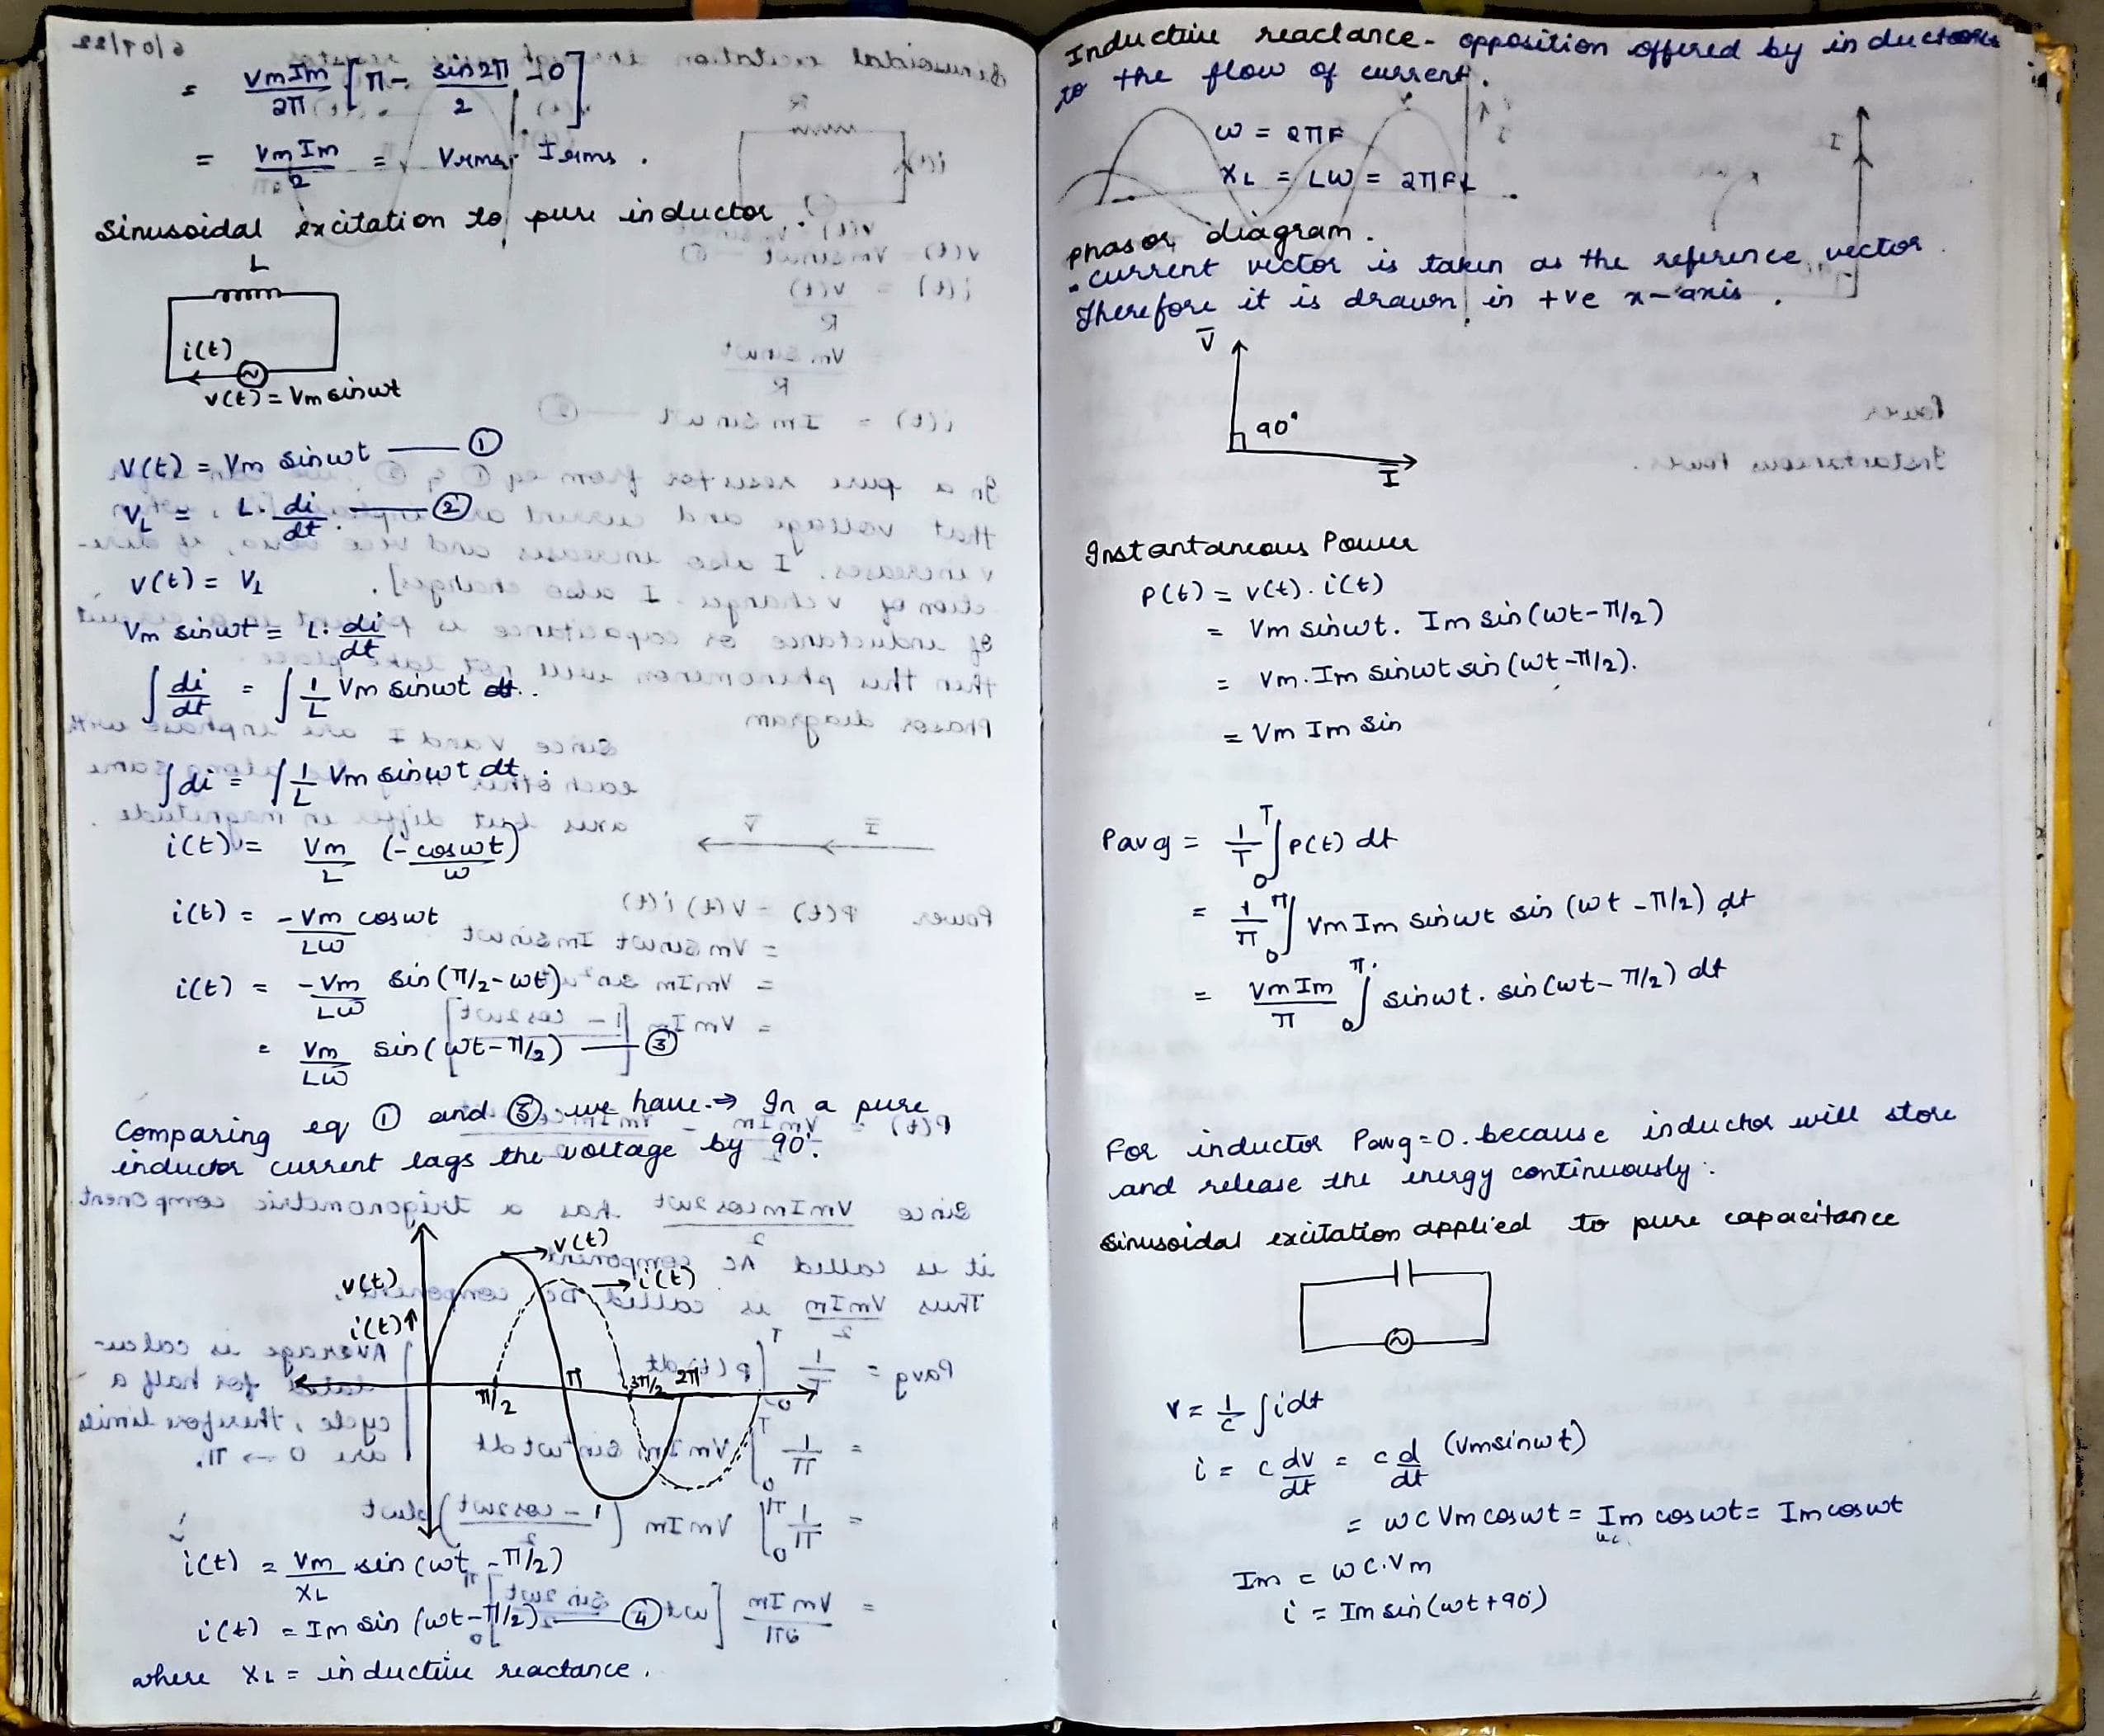 = VmIm/2π [π - sin2π/2 - 0]
= VmIm/2 = Vrms. Irms.
Sinusoidal excitation to pure inductor.
L
i(t)
v(t) = Vm sinwt
V(t) = Vm sinwt — ①
VL = L. di/dt. — ②
v(t) = VL
Vm sinwt = L. di/dt
∫ di/dt = ∫ 1/L Vm sinwt dt.
∫ di = ∫ 1/L Vm sinwt dt.
i(t) = Vm/L (-coswt/w)
i(t) = -Vm/Lw coswt
i(t) = -Vm/Lw sin(π/2-wt)
= Vm/Lw sin(wt-π/2) — ③
Comparing eq ① and ③ we have → In a pure
inductor current lags the voltage by 90°.
v(t)
i(t)
v(t)
i(t)↑
π/2 π 3π/2 2π
i(t) = Vm/XL sin(wt-π/2)
i(t) = Im sin (wt-π/2) — ④
where XL = inductive reactance.
Inductive reactance - opposition offered by inductors
to the flow of current.
ω = 2πF
XL = LW = 2πFL
phasor diagram.
. current vector is taken as the reference vector.
Therefore it is drawn in +ve x-axis.
V̅
90°
I̅
Instantaneous Power
P(t) = v(t). i(t)
= Vm sinwt. Im sin(wt-π/2)
= Vm. Im sinwt sin(wt-π/2).
= Vm Im sin
Pavg = 1/T ∫₀ᵀ P(t) dt
= 1/π ∫₀^π Vm Im sinwt sin (wt-π/2) dt
= VmIm/π ∫₀^π sinwt. sin(wt-π/2) dt
For inductor Pavg=0. because inductor will store
and release the energy continuously.
Sinusoidal excitation applied to pure capacitance
v = 1/c ∫idt
i = c dv/dt = c d/dt (Vmsinwt)
= wc Vm coswt = Im coswt = Im coswt
Im = wc.Vm
i = Im sin(wt+90°)